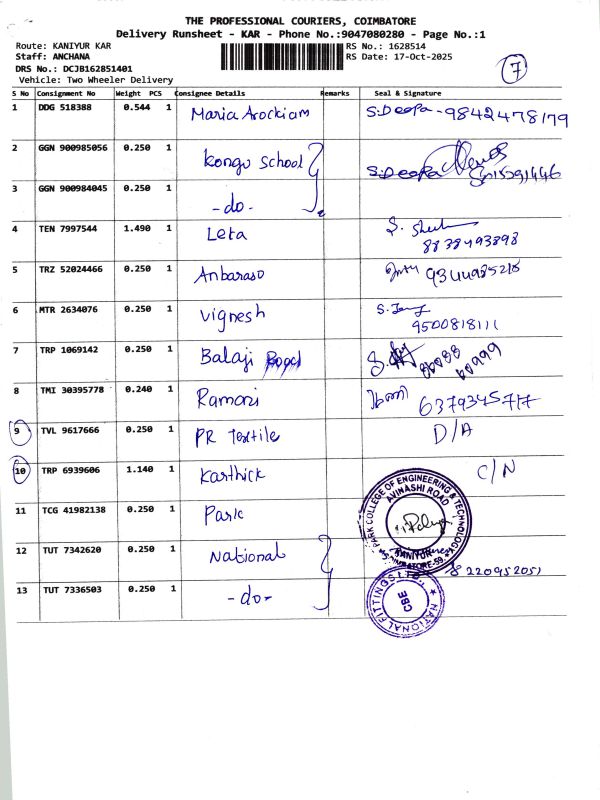 THE PROFESSIONAL COURIERS, COIMBATORE
Delivery Runsheet - KAR - Phone No.:9047080280 - Page No.:1
Route: KANIYUR KAR
RS No.: 1628514
Staff: ANCHANA
RS Date: 17-Oct-2025
DRS No.: DCJB162851401
Vehicle: Two Wheeler Delivery
7
S No Consignment No Weight PCS Consignee Details Remarks Seal & Signature
1 DDG 518388 0.544 1 Maria Arockiam S.Deepa - 9842478179
2 GGN 900985056 0.250 1 Kongu School S.Deepa
3 GGN 900984045 0.250 1 - do -
4 TEN 7997544 1.490 1 Leta 8838493898
5 TRZ 52024466 0.250 1 Anbaraso 9344985218
6 MTR 2634076 0.250 1 Vignesh 9500818111
7 TRP 1069142 0.250 1 Balaji 86088 60999
8 TMI 30395778 0.240 1 Ramani 6379345717
9 TVL 9617666 0.250 1 PR Textile D/A
10 TRP 6939606 1.140 1 Karthick C/N
11 TCG 41982138 0.250 1 Park
PARK COLLEGE OF ENGINEERING & TECHNOLOGY
AVINASHI ROAD
KANIYUR
COIMBATORE-59
12 TUT 7342620 0.250 1 National
8220952051
13 TUT 7336503 0.250 1 - do -
NATIONAL FITTINGS LTD.
CBE